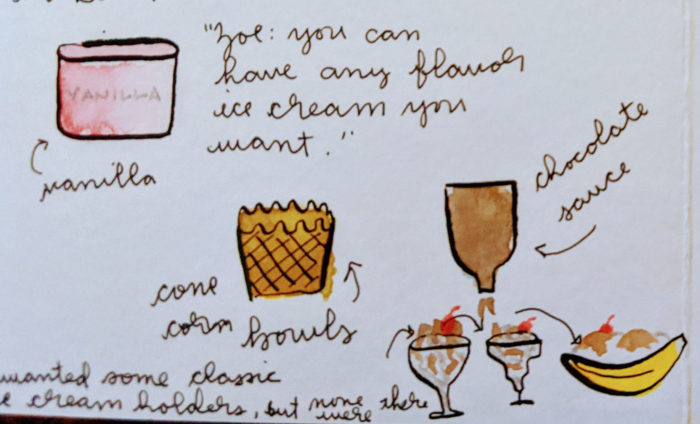 "Zoe: you can
have any flavor
ice cream you
want."
VANILLA
vanilla
chocolate
sauce
cone
corn bowls
wanted some classic
cream holders, but none there
were